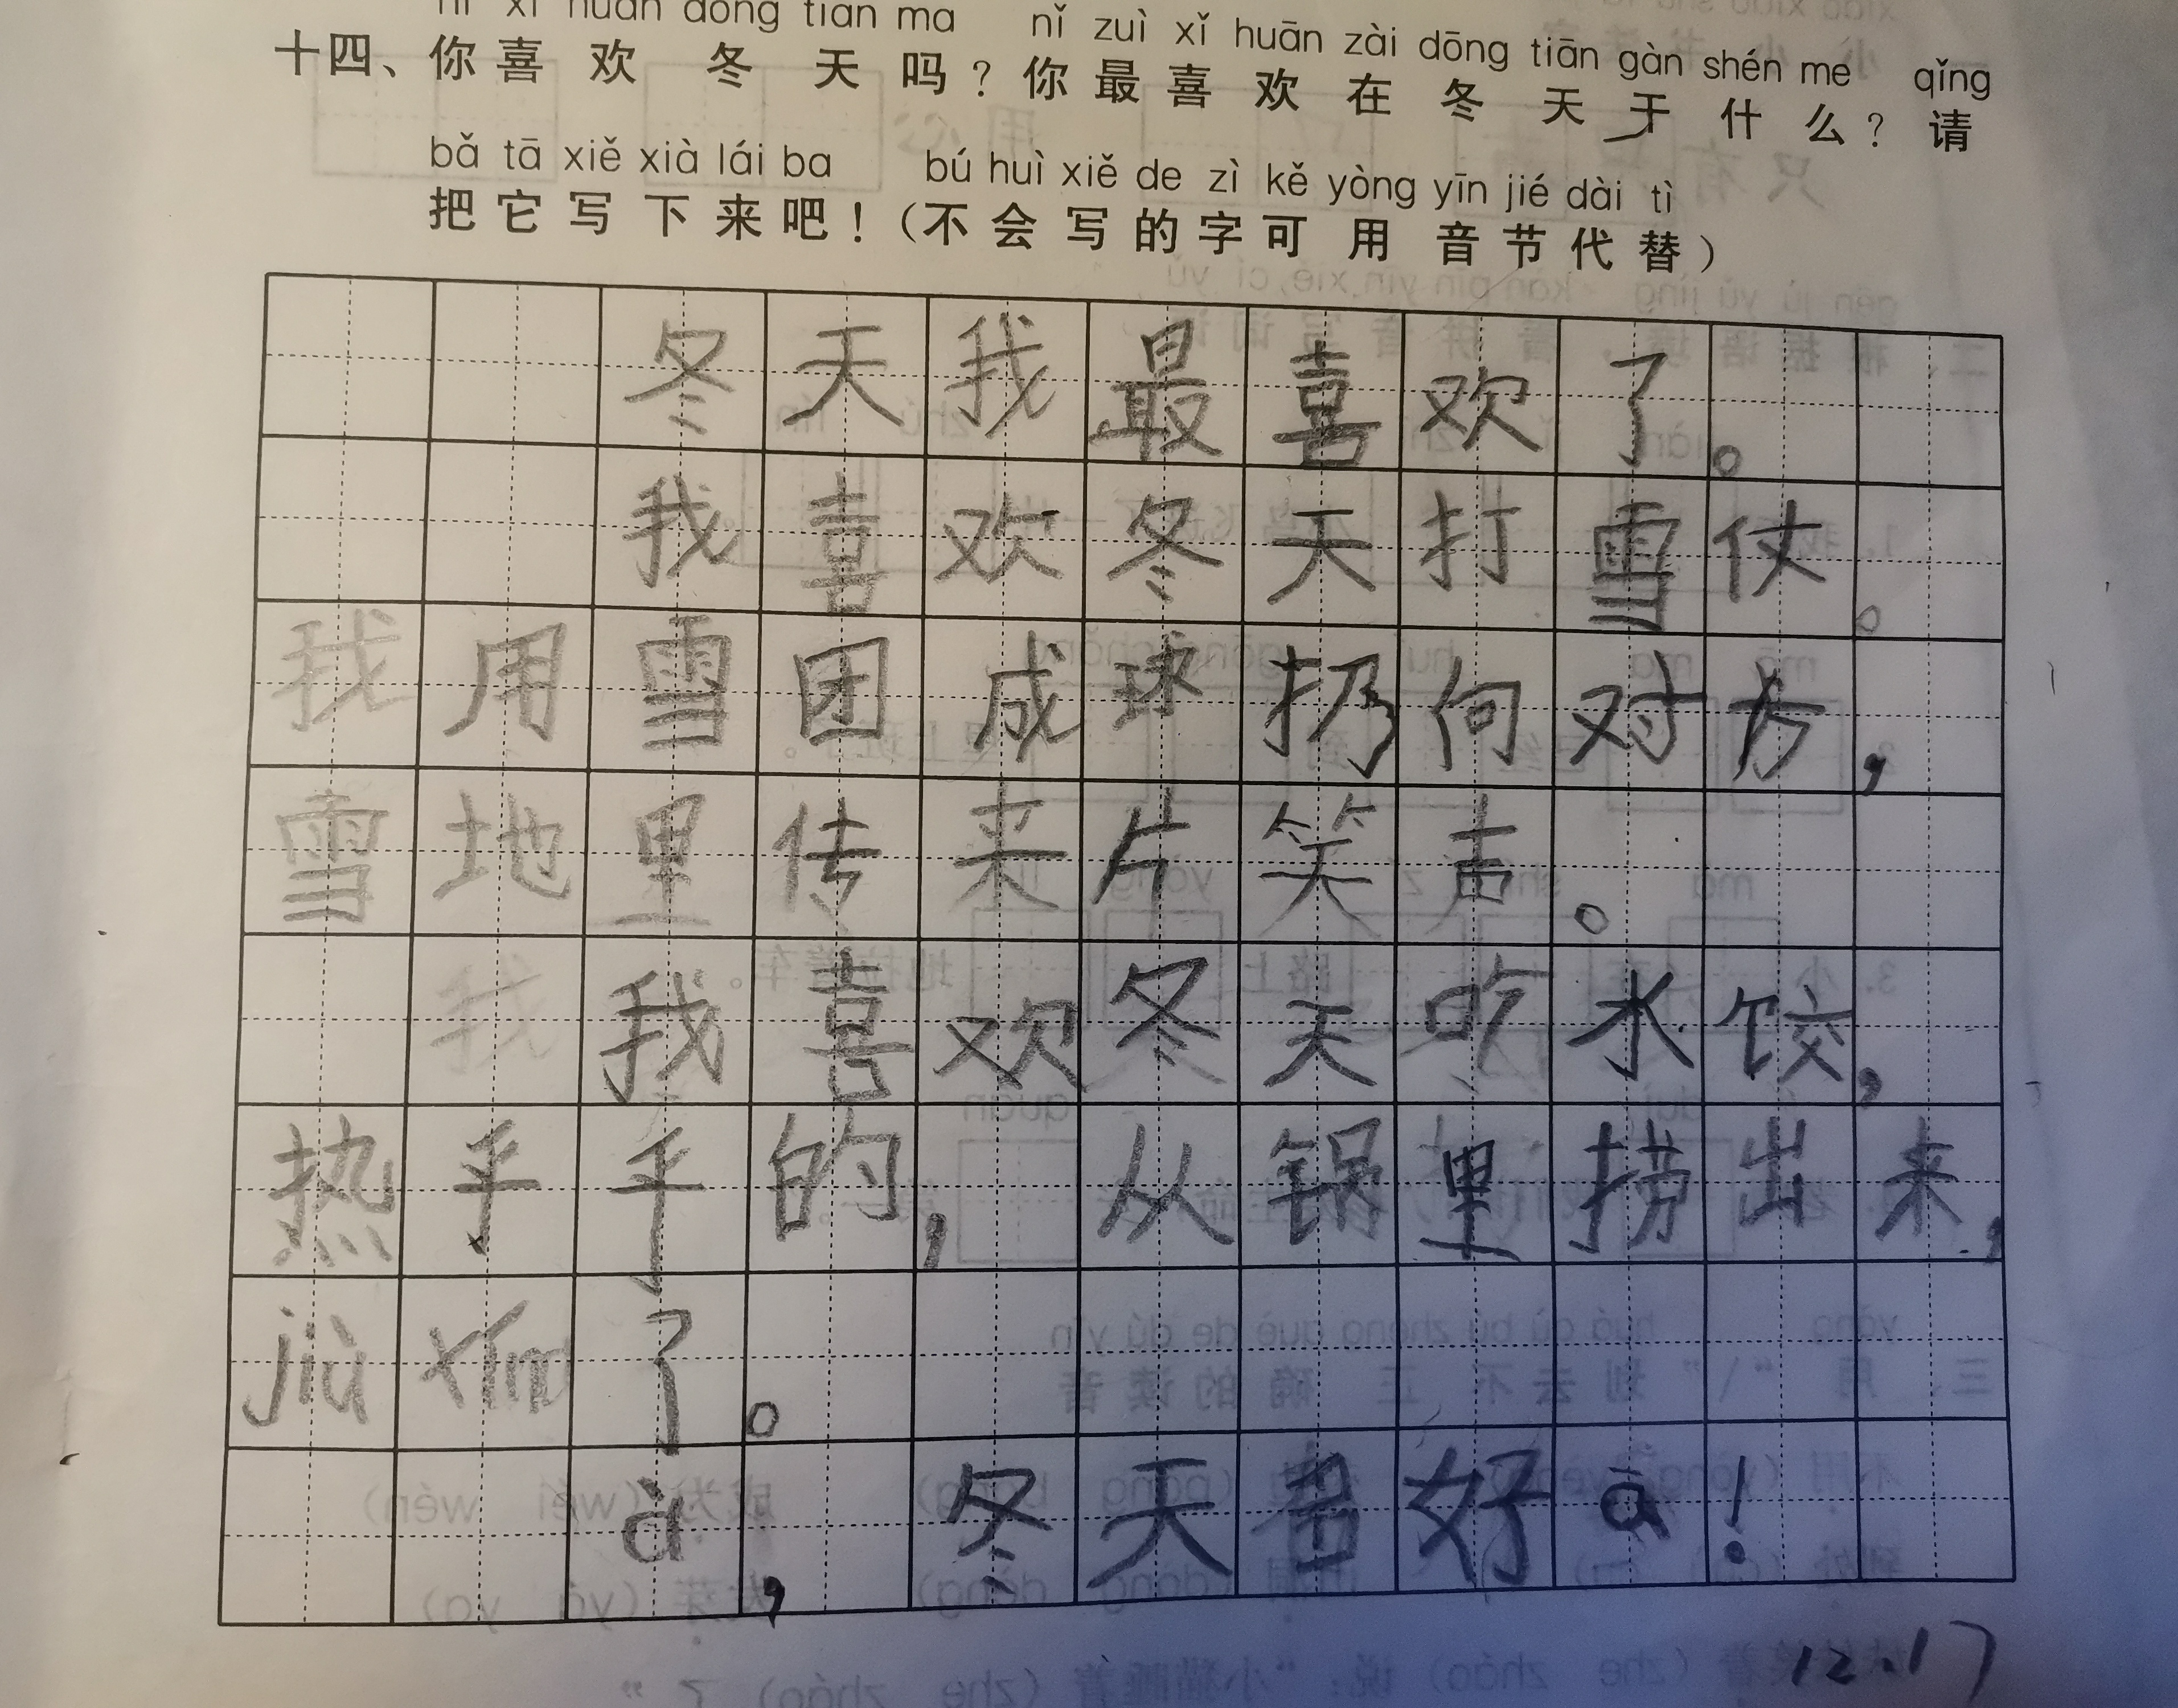 nǐ xǐ huān dōng tiān ma nǐ zuì xǐ huān zài dōng tiān gàn shén me qǐng
十四、你喜欢冬天吗？你最喜欢在冬天干什么？请
bǎ tā xiě xià lái ba bú huì xiě de zì kě yòng yīn jié dài tì
把它写下来吧！（不会写的字可用音节代替）
冬天我最喜欢了。
我喜欢冬天打雪仗。
我用雪团成球扔向对方，
雪地里传来片笑声。
我喜欢冬天吃水饺，
热乎乎的，从锅里捞出来，
jiù xíng了。
à，冬天真好ā！
12.17